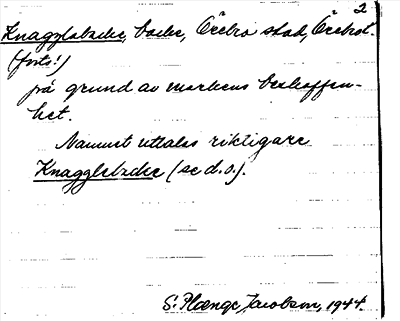 2
Knagglabacke, backe, Örebro stad, Örebro l.
(forts.)
på grund av markens beskaffen-
het.
Namnet uttalas riktigare
Knagglebacke (se d.o.).
S. Plænge Jacobson, 1944.